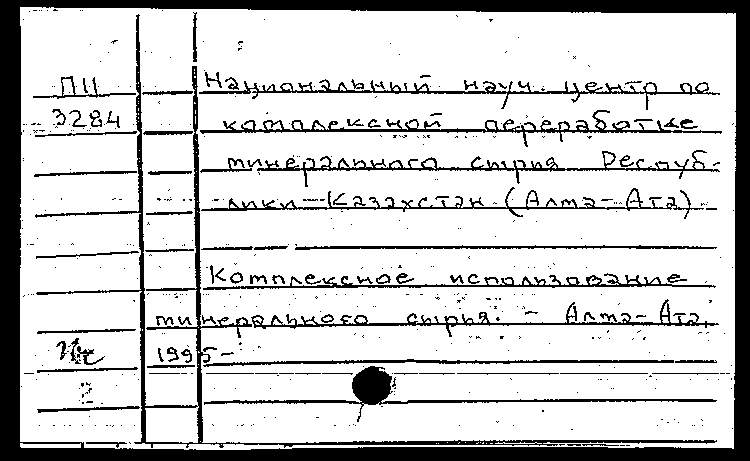 П11 Национальный науч. центр по
3284 комплексной переработке
минерального сырья Респуб-
лики Казахстан (Алма-Ата)
Комплексное использование
минерального сырья. - Алма-Ата,
1995-
2